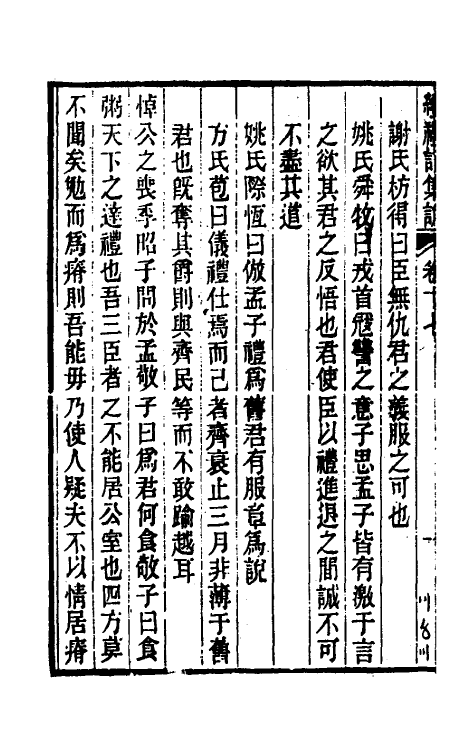 續禮記集說 卷十七
謝氏枋得曰臣無仇君之義服之可也
姚氏舜牧曰戎首冦讐之意子思孟子皆有激于言
之欲其君之反悟也君使臣以禮進退之間誠不可
不盡其道
姚氏際恆曰倣孟子禮爲舊君有服章爲說
方氏苞曰儀禮仕焉而已者齊衰止三月非薄于舊
君也旣奪其爵則與齊民等而不敢踰越耳
悼公之喪季昭子問於孟敬子曰爲君何食敬子曰食
粥天下之達禮也吾三臣者之不能居公室也四方莫
不聞矣勉而爲瘠則吾能毋乃使人疑夫不以情居瘠